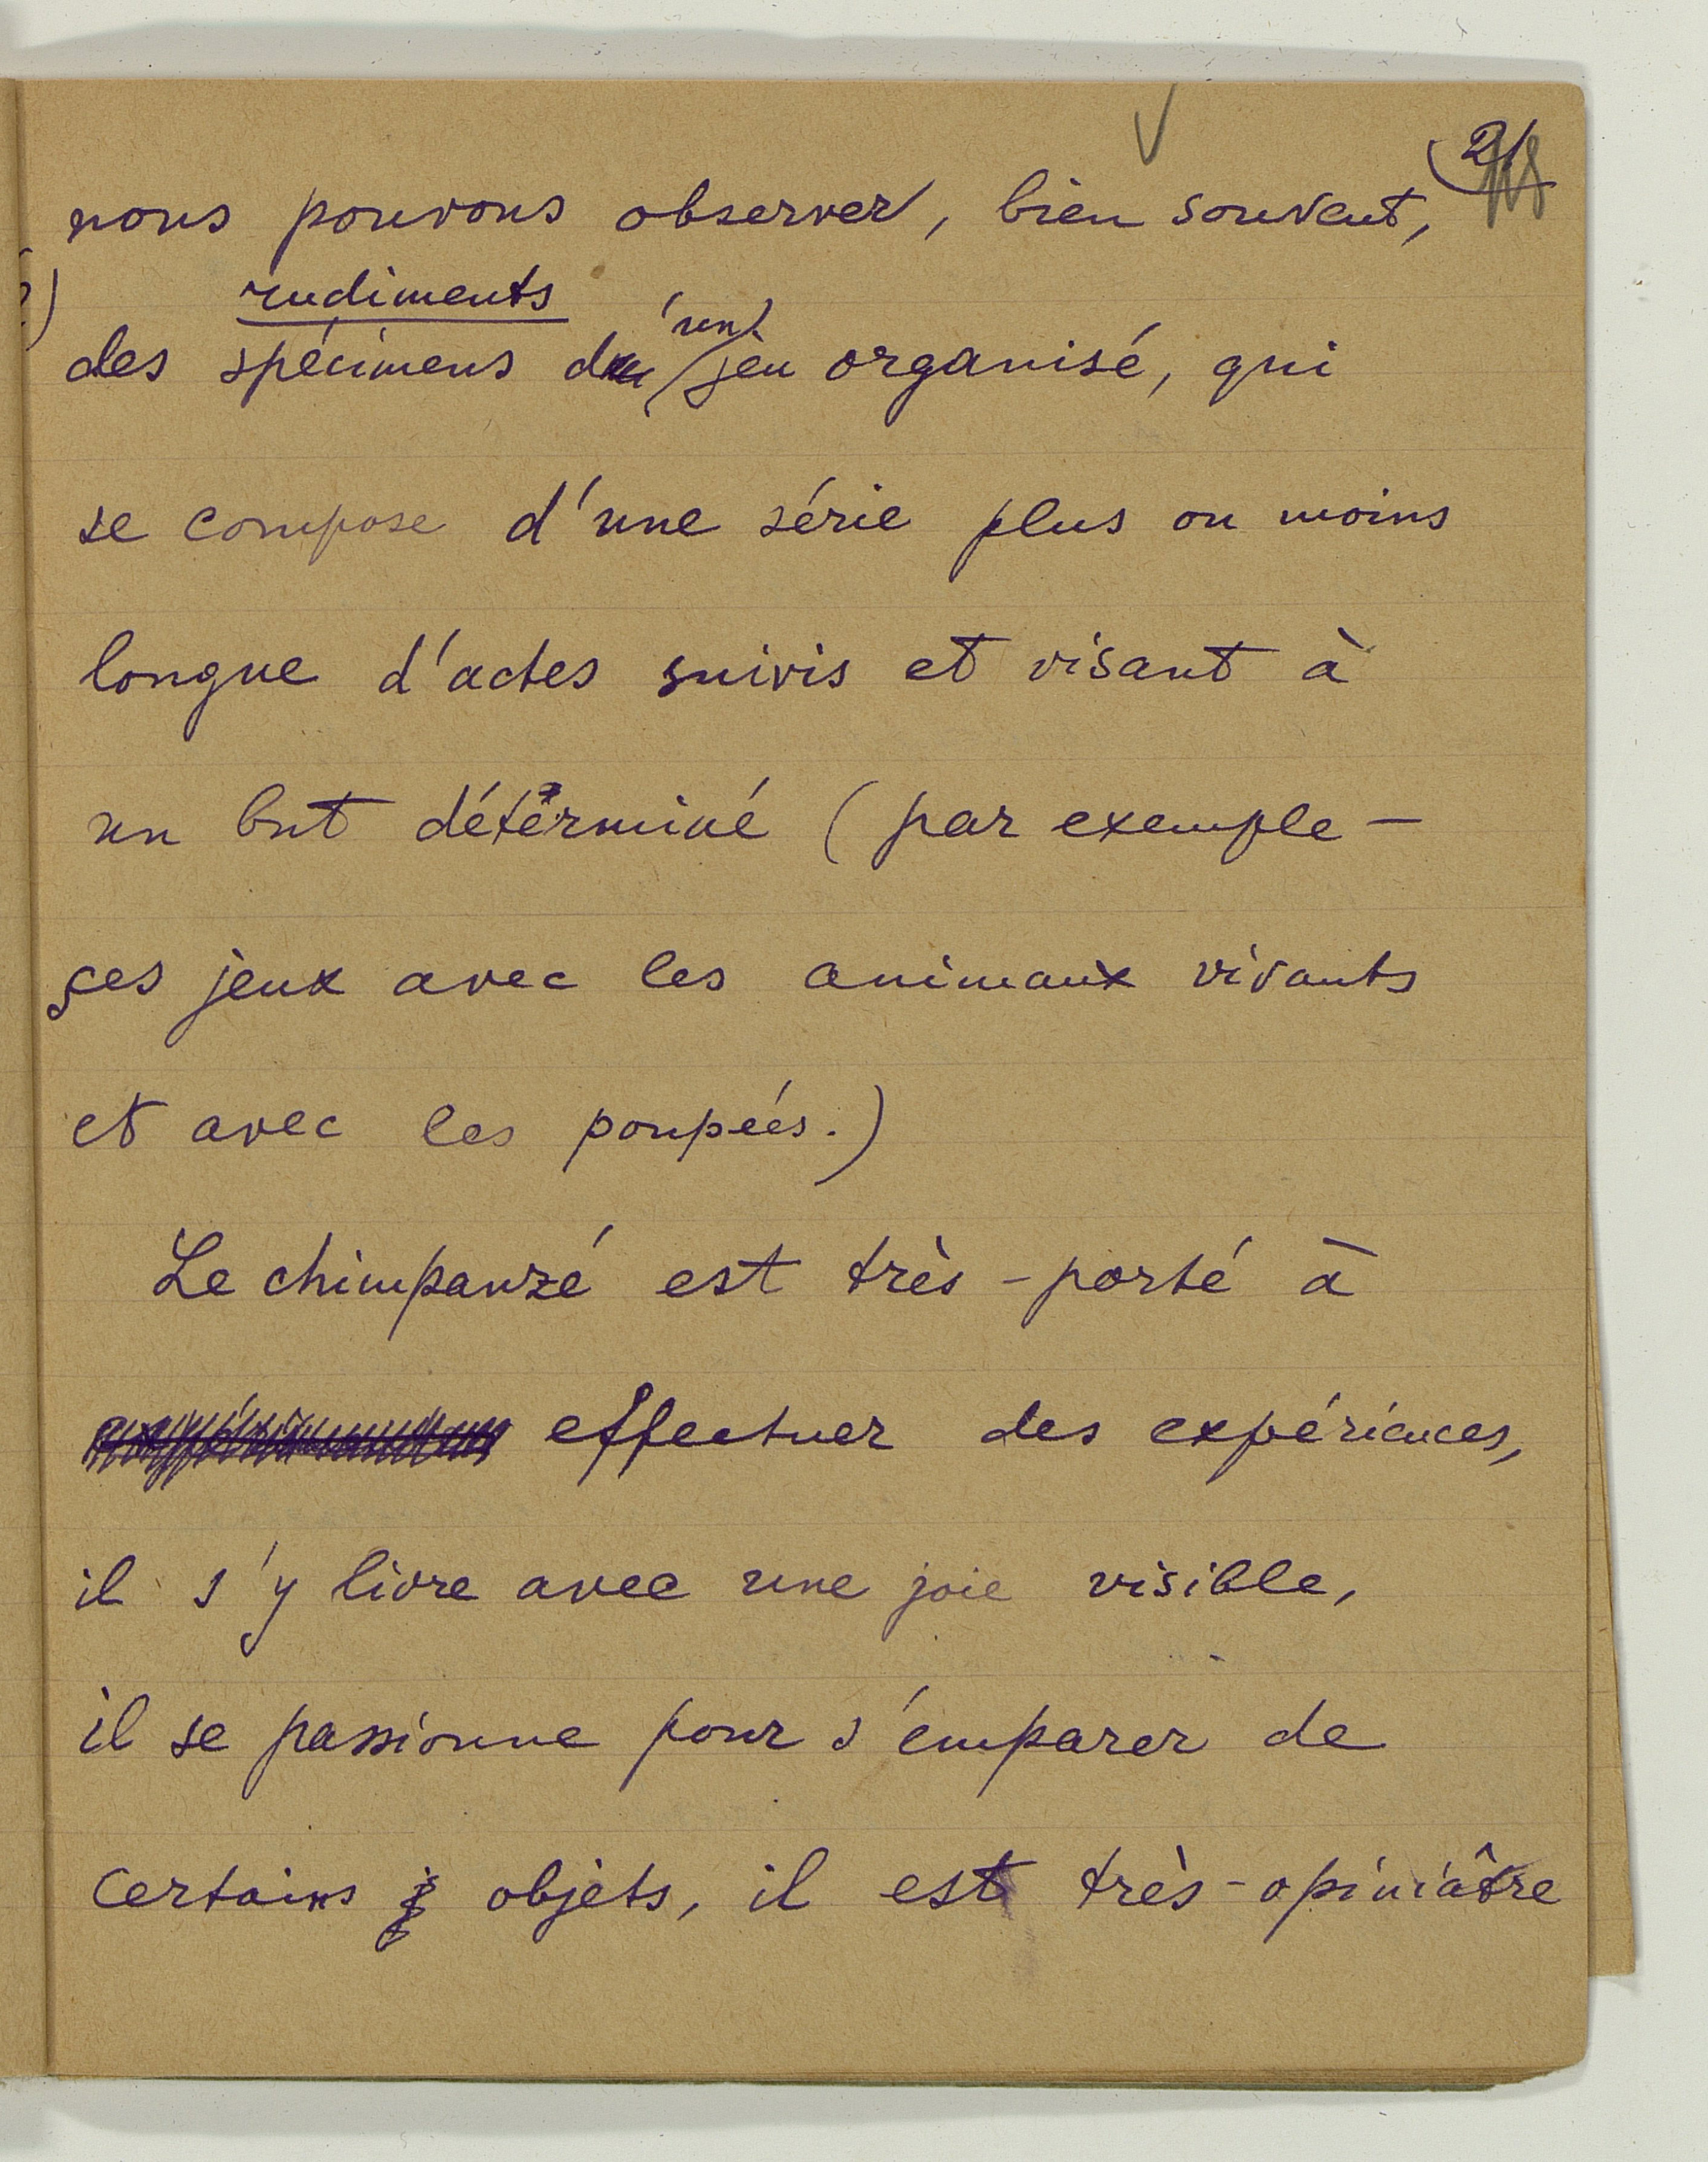 21
nous pouvons observer, bien souvent,
rudiments
des spécimens d'un jeu organisé, qui
se compose d'une série plus ou moins
longue d'actes suivis et visant à
un but déterminé (par exemple —
ses jeux avec les animaux vivants
et avec les poupeés.)
Le chimpanzé est très-porté à
effectuer des expériences,
il s'y livre avec une joie visible,
il se passionne pour s'emparer de
certains objets, il est très-opiniâtre